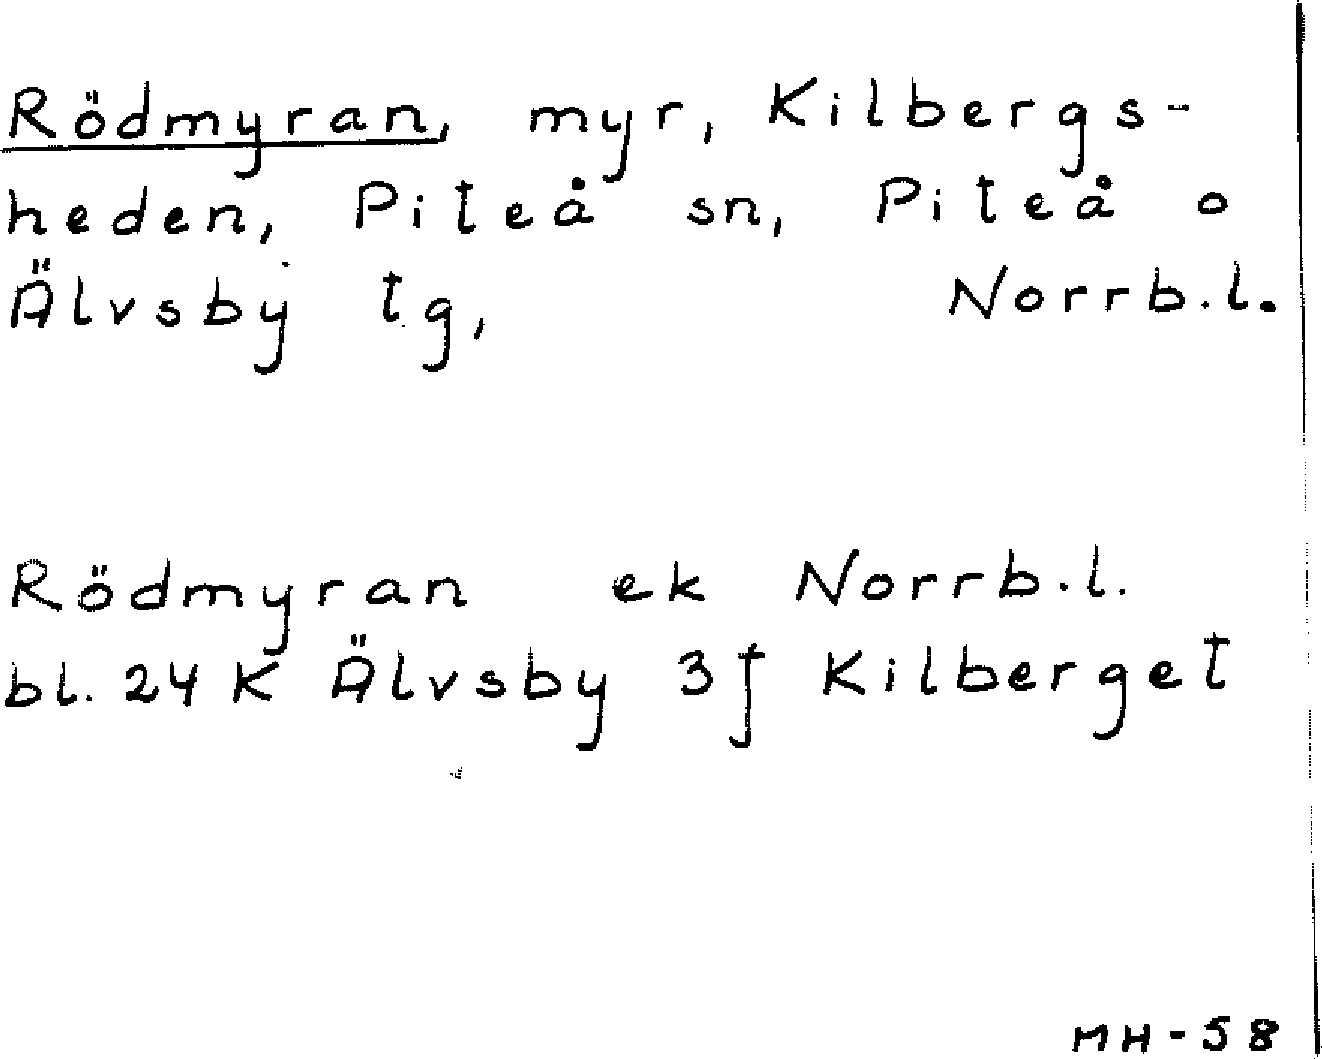 Rödmyran, myr, Kilbergs-
heden, Piteå sn, Piteå o
Älvsby tg, Norrb.l.
Rödmyran ek Norrb.l.
bl. 24 K Älvsby 3f Kilberget
MH-58